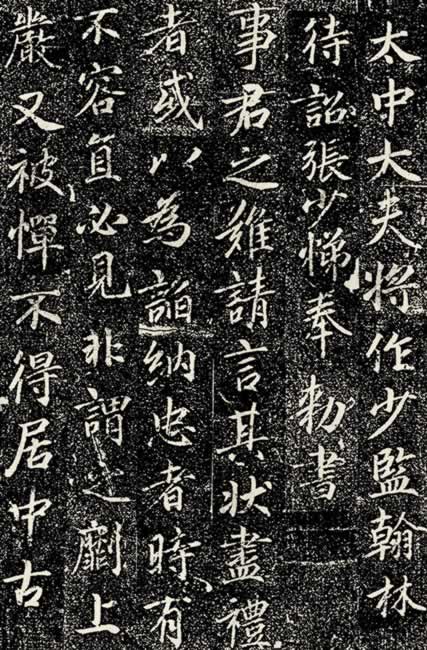 太中大夫將作少監翰林
待詔張少悌奉勑書
事君之難請言其狀盡禮
者或以為諂納忠者時有
不容直必見非謂之劘上
嚴又被憚不得居中古